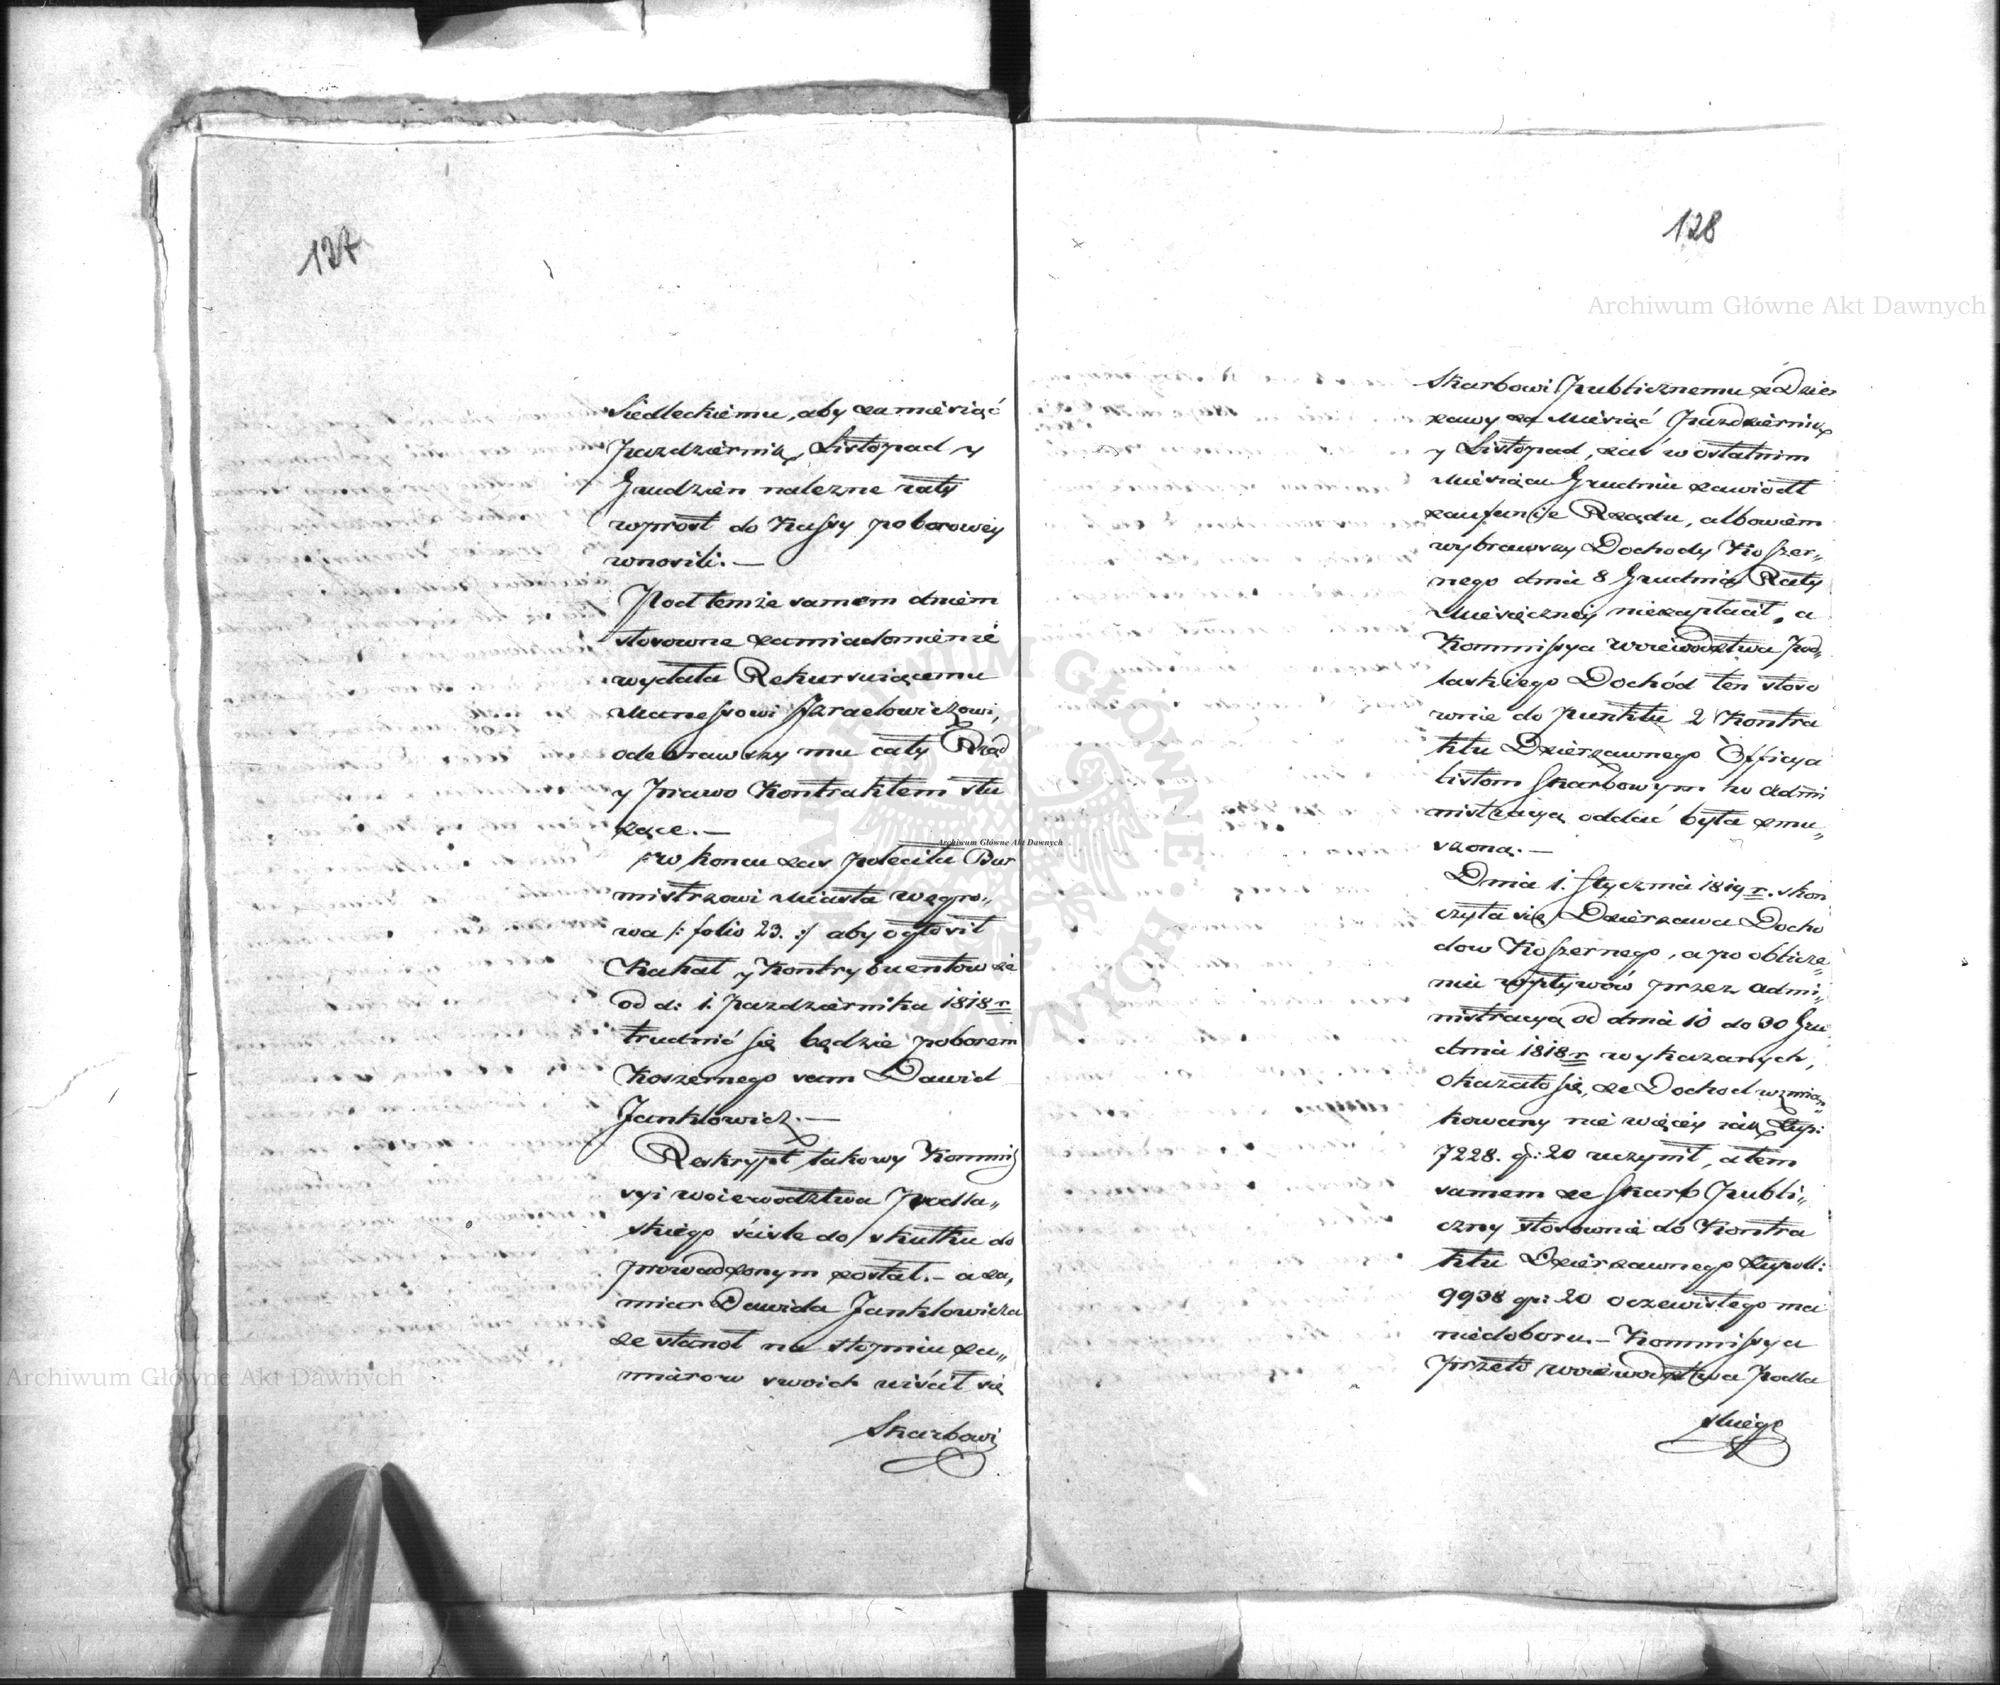 127
Siedleckiemu, aby za miesiąc
Pazdziernik, Listopad y
Grudzien należne raty
wprost do Kassy poborowey
wnosili. —
Pod temże samem dniem
stosowne zamiadomienie
wydała Rekursuiącemu
Manessowi Izraelowiczowi,
odebrawszy mu cały Rząd
y Prawo Kontraktem słu
żące. —
w koncu zas poleciła Bur
mistrzowi Miasta Węgro„
wa /: folio 23. :/ aby ogłosił
Kahał y Kontrybuentow że
od d: 1. Pazdziernika 1818 r
trudnić się będzie poborem
Koszernego sam Dawid
Janklowicz. —
Reskrypt takowy Kommis
syi Woiewodztwa Podla„
skiego ściśle do skutku do
prowadzonym został. — a za„
miar Dawida Janklowicza
że stanoł na stopniu za„
miarow swoich uiścił się
Skarbowi
128
Skarbowi Publicznemu z Dzier
żawy za Miesiąc Pazdziernik
y Listopad, zaś w ostatnim
Miesiącu Grudniu zawiodł
zaufanie Rządu, albowiem
wybrawszy Dochody Koszer„
nego dnia 8 Grudnia Raty
Miesięczney niezapłacił, a
Kommissya Woiewodztwa Pod„
laskiego Dochód ten stoso
wnie do punktu 2 Kontra
ktu Dzierzawnego Officya
listom Skarbowym w Admi
nistracyą oddać była zmu„
szoną. —
Dnia 1. Stycznia 1819 r. skon
czyła się Dzierzawa Docho
dow Koszernego, a po oblicze„
niu wpływów przez Admi„
nistracyą od dnia 10 do 30 Gru
dnia 1818 r wykazanych,
okazało się, że Dochod wzmian„
kowany nie więcey iak Złp:
7228. gr: 20 uczynił, a tem
samem że Skarb Publi„
czny stosownie do Kontra
ktu Dzierzawnego Złpoll:
9938 gr: 20 oczewistego ma
niedoboru. — Kommissya
przeto Woiewodztwa Podla
skiego
Archiwum Główne Akt Dawnych
Archiwum Główne Akt Dawnych
Archiwum Główne Akt Dawnych
ARCHIWUM GŁÓWNE AKT DAWNYCH